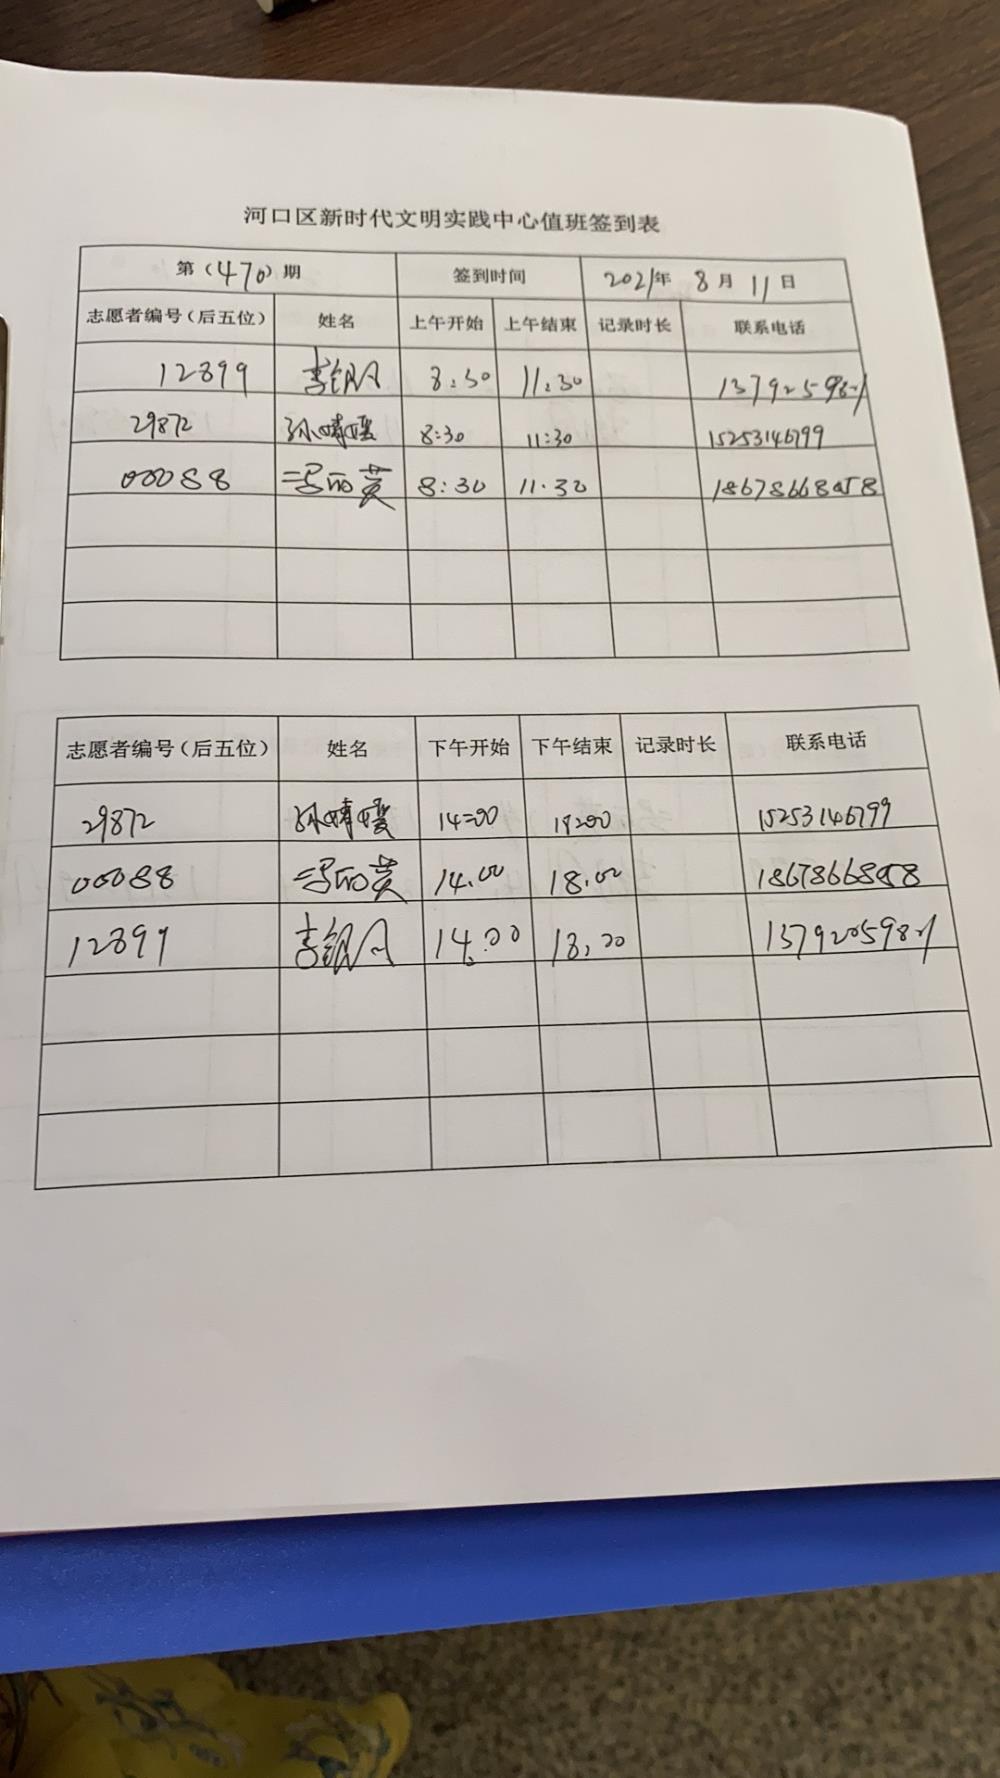 河口区新时代文明实践中心值班签到表
第（470）期 签到时间 2021年 8月 11日
志愿者编号（后五位） 姓名 上午开始 上午结束 记录时长 联系电话
12899 8:30 11:30
29872 孙婧媛 8:30 11:30 15253146799
00088 8:30 11.30 18678668958
志愿者编号（后五位） 姓名 下午开始 下午结束 记录时长 联系电话
29872 孙婧媛 14:00 15253146799
00088 14.00 18.00 18678668958
12899 14.00 18.00